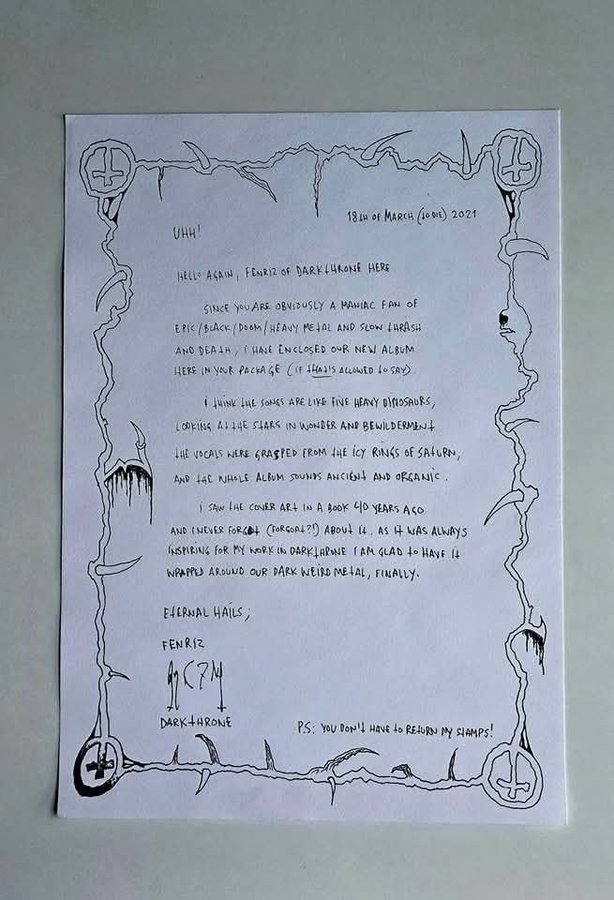 18th OF MARCH (to DIE) 2021
UHH!
HELLO AGAIN, FENRIZ OF DARKTHRONE HERE
SINCE YOU ARE OBVIOUSLY A MANIAC FAN OF
EPIC/BLACK/DOOM/HEAVY METAL AND SLOW THRASH
AND DEATH, I HAVE ENCLOSED OUR NEW ALBUM
HERE IN YOUR PACKAGE (IF THAT'S ALLOWED TO SAY).
I THINK THE SONGS ARE LIKE FIVE HEAVY DINOSAURS,
LOOKING AT THE STARS IN WONDER AND BEWILDERMENT
THE VOCALS WERE GRASPED FROM THE ICY RINGS OF SATURN,
AND THE WHOLE ALBUM SOUNDS ANCIENT AND ORGANIC.
I SAW THE COVER ART IN A BOOK 40 YEARS AGO
AND I NEVER FORGOT (FORGOAT?!) ABOUT IT. AS IT WAS ALWAYS
INSPIRING FOR MY WORK IN DARKTHRONE I AM GLAD TO HAVE IT
WRAPPED AROUND OUR DARK WEIRD METAL, FINALLY.
ETERNAL HAILS;
FENRIZ
DARKTHRONE
P.S: YOU DON'T HAVE TO RETURN MY STAMPS!